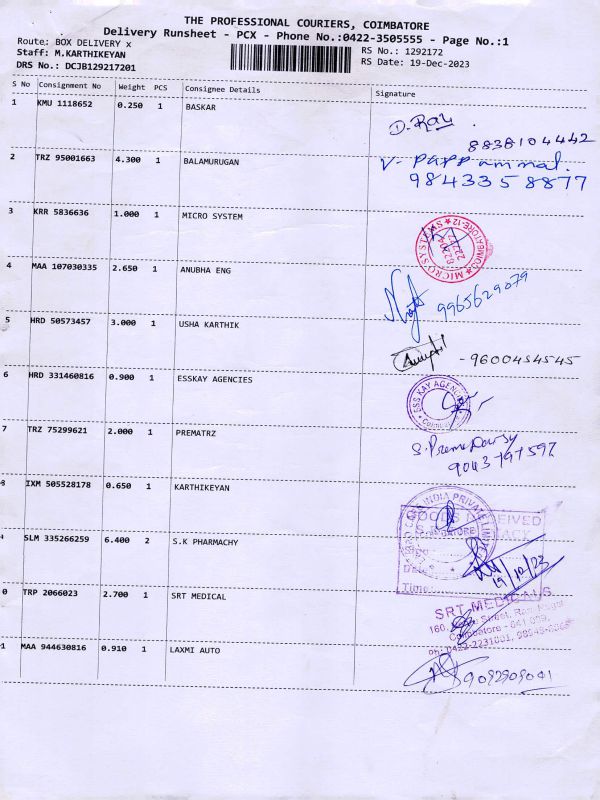 THE PROFESSIONAL COURIERS, COIMBATORE
Delivery Runsheet - PCX - Phone No.:0422-3505555 - Page No.:1
Route: BOX DELIVERY x
Staff: M.KARTHIKEYAN
DRS No.: DCJB129217201
RS No.: 1292172
RS Date: 19-Dec-2023
S No Consignment No Weight PCS Consignee Details Signature
1 KMU 1118652 0.250 1 BASKAR
D. Raj
8838104442
2 TRZ 95001663 4.300 1 BALAMURUGAN
V. Pappammal.
9843358877
3 KRR 5836636 1.000 1 MICRO SYSTEM
MICRO SYSTEM
COIMBATORE-12
4 MAA 107030335 2.650 1 ANUBHA ENG
9965629079
5 HRD 50573457 3.000 1 USHA KARTHIK
-9600454545
6 HRD 331460816 0.900 1 ESSKAY AGENCIES
ESS KAY AGENCIES
7 TRZ 75299621 2.000 1 PREMATRZ
9043797597
8 IXM 505528178 0.650 1 KARTHIKEYAN
INDIA PRIVATE LIMITED
GOODS RECEIVED
SLM 335266259 6.400 2 S.K PHARMACHY
Date
Time
19/12/23
0 TRP 2066023 2.700 1 SRT MEDICAL
SRT MEDICALS
160, Street, Ram Nagar
Coimbatore - 641 009.
1 MAA 944630816 0.910 1 LAXMI AUTO
9092909041